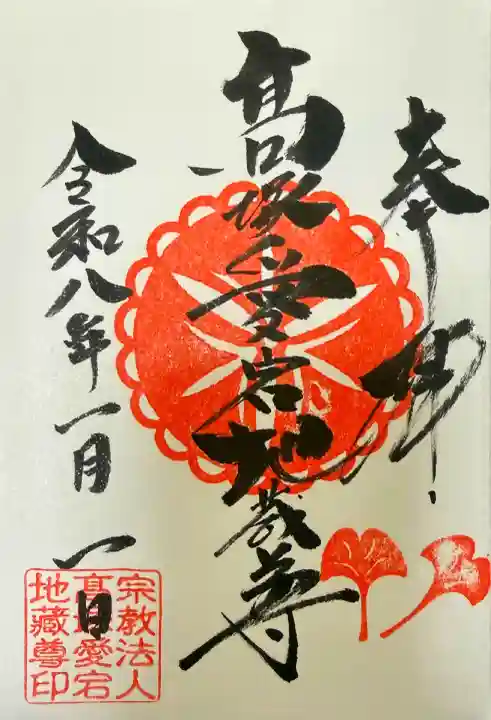 奉拝
髙塚愛宕地蔵尊
令和八年一月一日
宗教法人
髙塚愛宕
地藏尊印